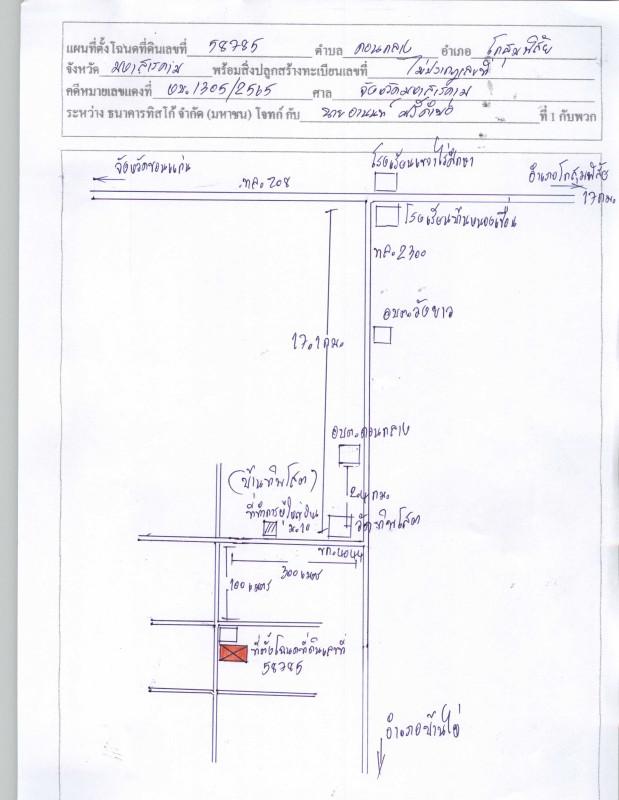 แผนที่ตั้งโฉนดที่ดินเลขที่ 58785 ตำบล ดอนกลาง อำเภอ โกสุมพิสัย
จังหวัด มหาสารคาม พร้อมสิ่งปลูกสร้างทะเบียนเลขที่ ไม่ปรากฏเลขที่
คดีหมายเลขแดงที่ ผบ.1305/2565 ศาล จังหวัดมหาสารคาม
ระหว่าง ธนาคารทิสโก้ จำกัด (มหาชน) โจทก์ กับ นายอานนท์ ที่ 1 กับพวก
จังหวัดขอนแก่น
ทล.208
อำเภอโกสุมพิสัย
17 กม.
โรงเรียนบ้านหนองเขื่อน
ทล.2300
อบต.วังยาว
17.1 กม.
อบต.ดอนกลาง
2.4 กม.
(บ้านทิพโสต)
ที่ทำการผู้ใหญ่บ้าน
ม.10
วัดทิพโสต
300 เมตร
100 เมตร
ที่ตั้งโฉนดที่ดินเลขที่
58785
อำเภอบ้านไผ่